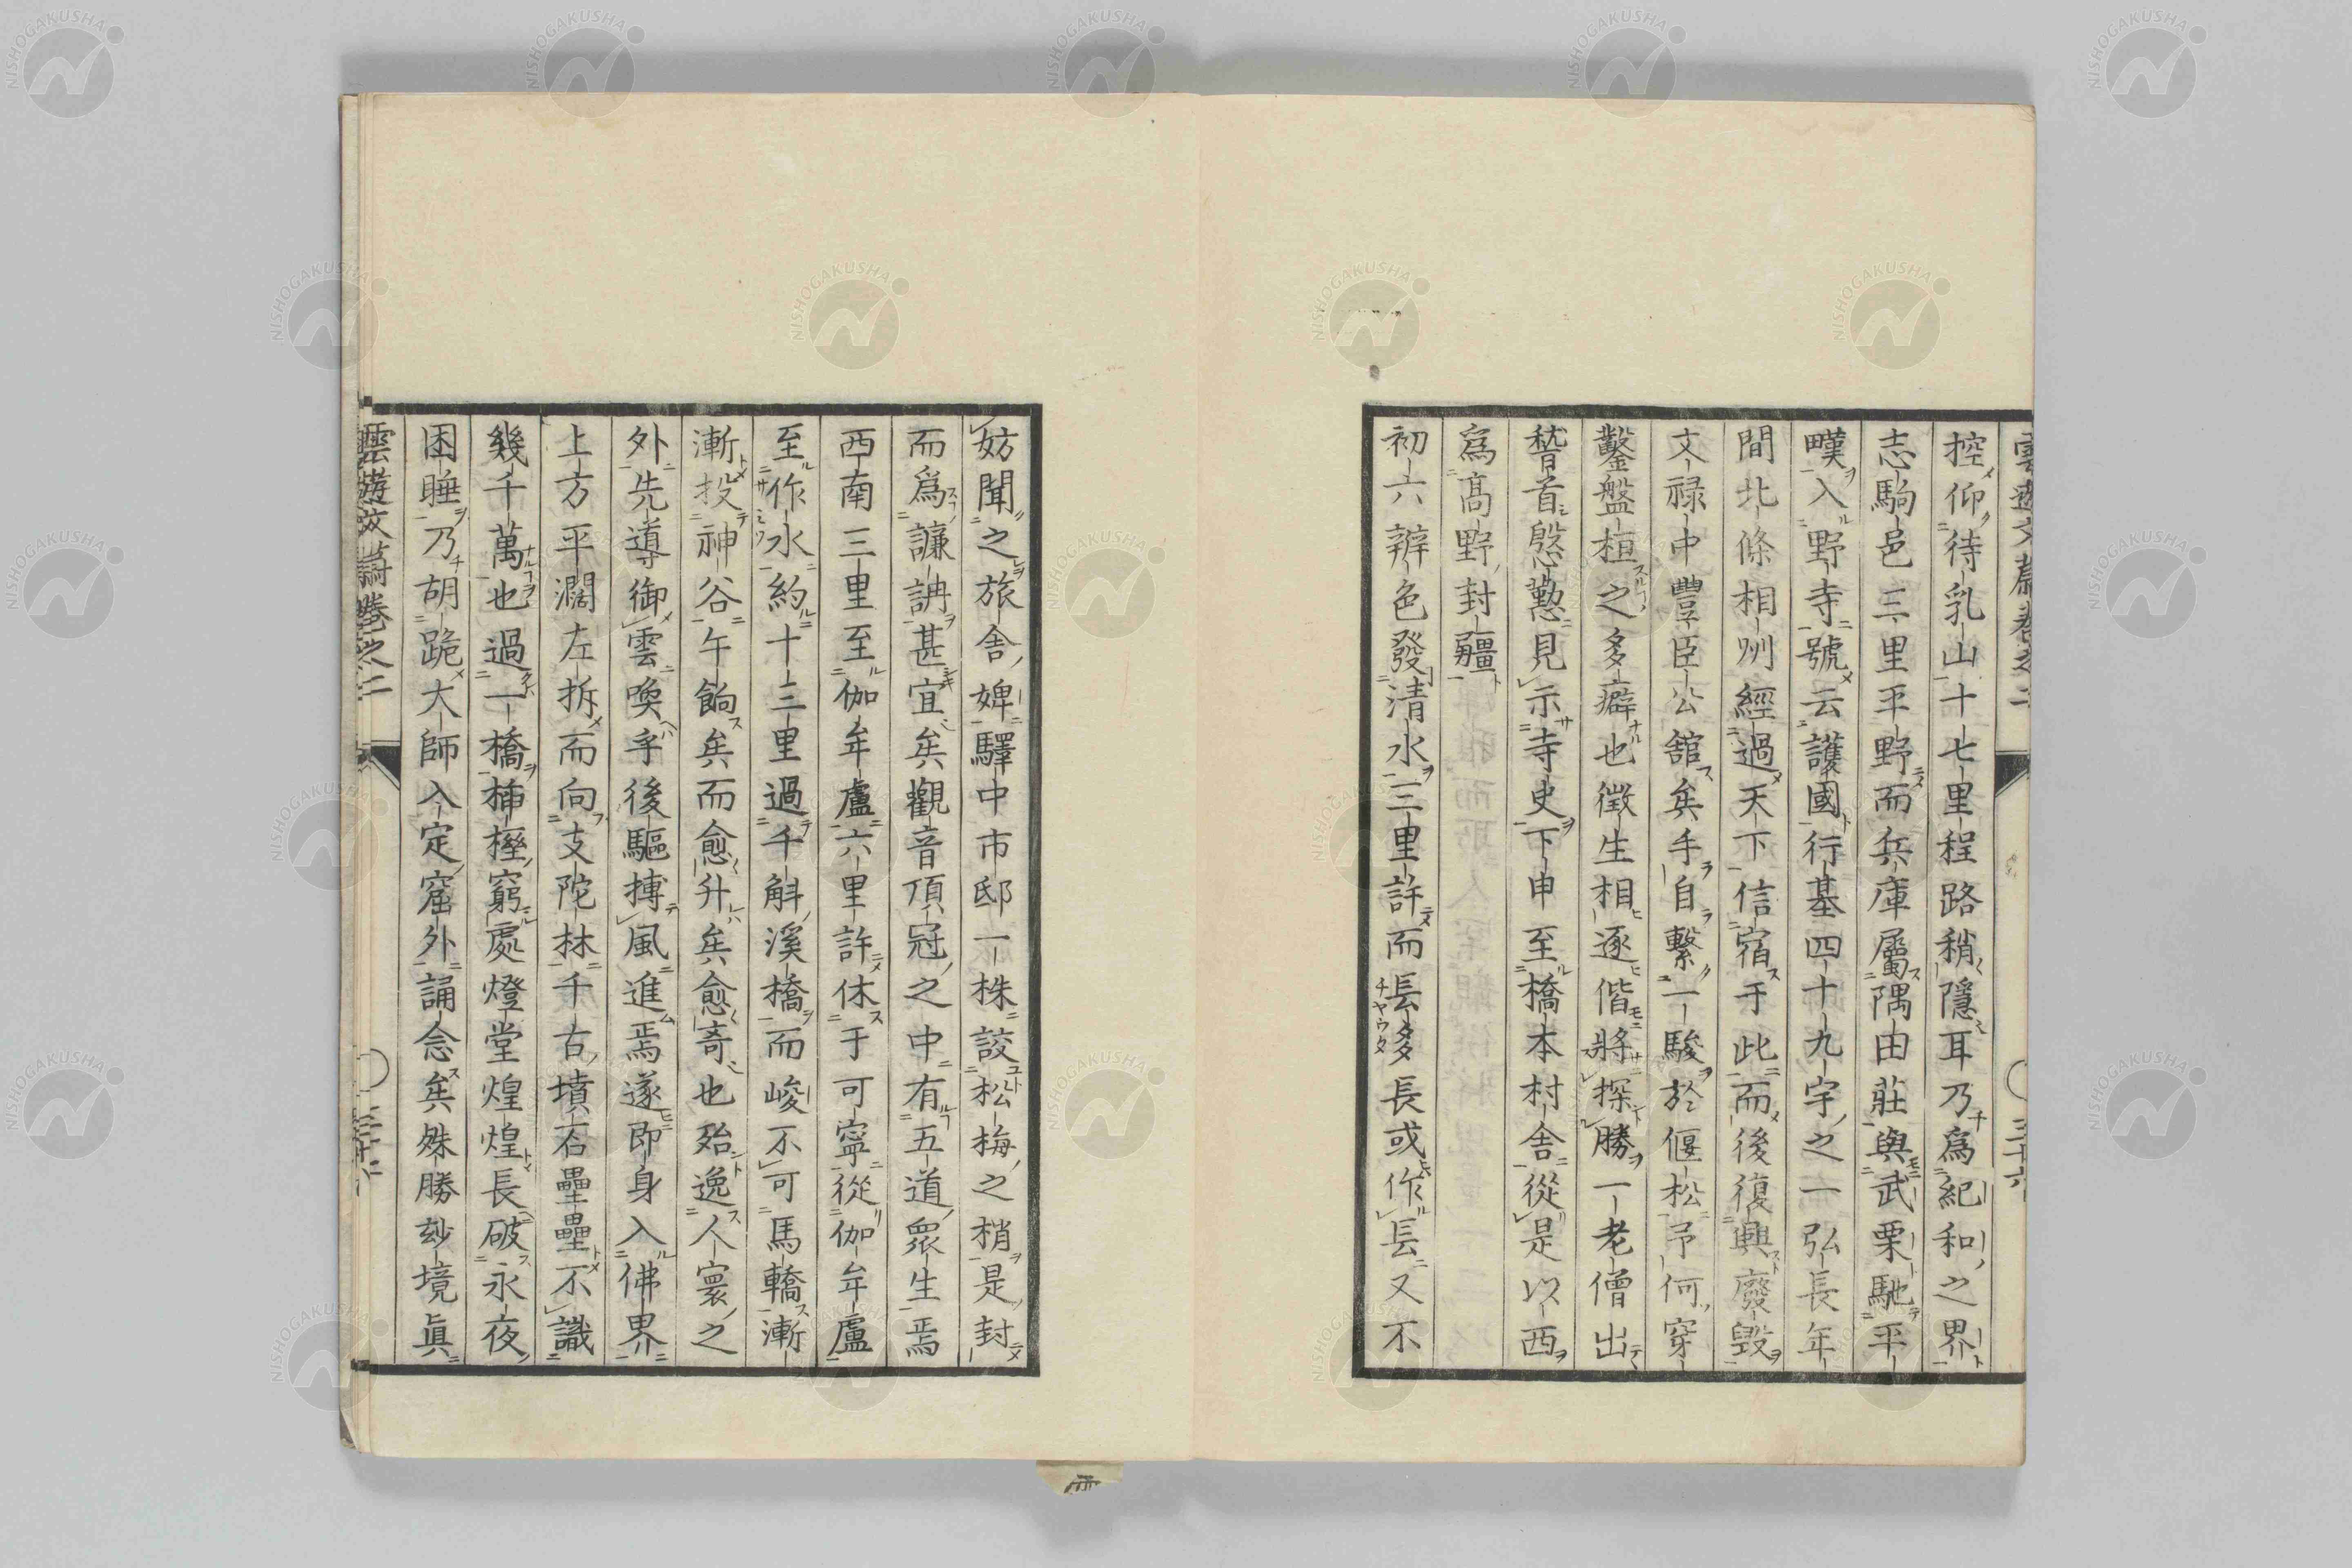 雲遊文蔚卷之二 三十六
控仰待乳山十七里程路稍隱耳乃爲紀和之界
志駒邑三里平野而兵庫屬隅由莊與武栗馳平
嘆入野寺號云護國行基四十九宇之一弘長年
間北條相州經過天下信宿于此而後復興廢毀
文禄中豐臣公舘矣手自繫一駿於偃松予何穿
鑿盤桓之多癖也徵生相逐偕將探勝一老僧出
稽首慇懃見示寺史下申至橋本村舍從是以西
爲高野封疆
初六辨色發清水三里許而長多長或作長又不
チヤウタ
妨聞之旅舍婢驛中市邸一株設松梅之梢是封
而爲謙訥甚宜矣觀音頂冠之中有五道衆生焉
西南三里至伽牟盧六里許休于可寧從伽牟盧
至作水約十三里過千斛溪橋而峻不可馬轎漸
漸投神谷午餉矣而愈升矣愈奇也殆逸人寰之
外先導御雲喚乎後驅搏風進焉遂即身入佛界
上方平濶左拆而向支陀林千古墳石壘壘不識
幾千萬也過一橋挿檉窮處燈堂煌煌長破永夜
困睡乃胡跪大師入定窟外誦念矣殊勝玅境眞
雲遊文蔚卷之二 三十六
NISHOGAKUSHA